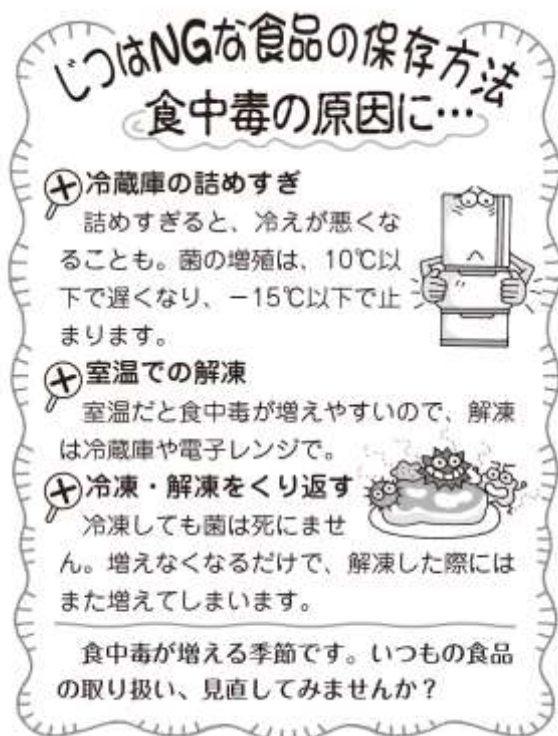 じつはNGな食品の保存方法
食中毒の原因に…
冷蔵庫の詰めすぎ
詰めすぎると、冷えが悪くな
ることも。菌の増殖は、10℃以
下で遅くなり、－15℃以下で止
まります。
室温での解凍
室温だと食中毒が増えやすいので、解凍
は冷蔵庫や電子レンジで。
冷凍・解凍をくり返す
冷凍しても菌は死にませ
ん。増えなくなるだけで、解凍した際には
また増えてしまいます。
食中毒が増える季節です。いつもの食品
の取り扱い、見直してみませんか？